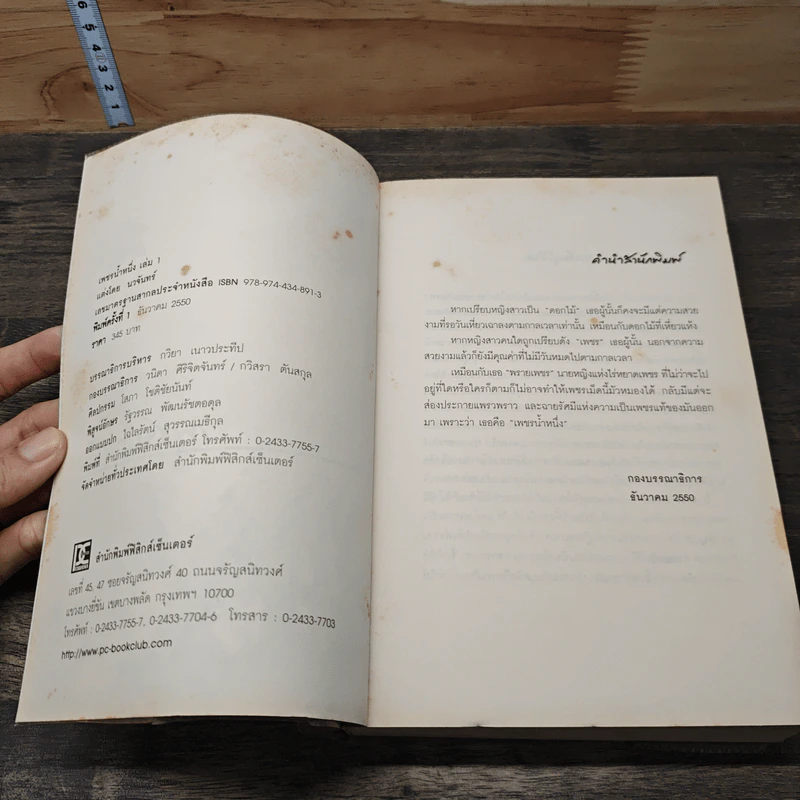 6
5
4
3
2
1
เพชรน้ำหนึ่ง เล่ม 1
แต่งโดย นวจันทร์
เลขมาตรฐานสากลประจำหนังสือ ISBN 978-974-434-891-3
พิมพ์ครั้งที่ 1 ธันวาคม 2550
ราคา 345 บาท
บรรณาธิการบริหาร กวิยา เนาวประทีป
กองบรรณาธิการ วนิดา ศิริจิตจันทร์ / กวิสรา ตันสกุล
ศิลปกรรม โสภา โชติชัยนันท์
พิสูจน์อักษร รัฐวรรณ พัฒนรัชตอดุล
ออกแบบปก ใฉไลรัตน์ สุวรรณเมธีกุล
พิมพ์ที่ สำนักพิมพ์ฟิสิกส์เซ็นเตอร์ โทรศัพท์ : 0-2433-7755-7
จัดจำหน่ายทั่วประเทศโดย สำนักพิมพ์ฟิสิกส์เซ็นเตอร์
สำนักพิมพ์ฟิสิกส์เซ็นเตอร์
เลขที่ 45, 47 ซอยจรัญสนิทวงศ์ 40 ถนนจรัญสนิทวงศ์
แขวงบางยี่ขัน เขตบางพลัด กรุงเทพฯ 10700
โทรศัพท์ : 0-2433-7755-7, 0-2433-7704-6 โทรสาร : 0-2433-7703
http://www.pc-bookclub.com
คำนำสำนักพิมพ์
หากเปรียบหญิงสาวเป็น "ดอกไม้" เธอผู้นั้นก็คงจะมีแต่ความสวย
งามที่รอวันเหี่ยวเฉาลงตามกาลเวลาเท่านั้น เหมือนกับดอกไม้ที่เหี่ยวแห้ง
หากหญิงสาวคนใดถูกเปรียบดัง "เพชร" เธอผู้นั้น นอกจากความ
สวยงามแล้วก็ยังมีคุณค่าที่ไม่มีวันหมดไปตามกาลเวลา
เหมือนกับเธอ "พรายเพชร" นายหญิงแห่งไร่หยาดเพชร ที่ไม่ว่าจะไป
อยู่ที่ใดหรือใครก็ตามก็ไม่อาจทำให้เพชรเม็ดนี้มัวหมองได้ กลับมีแต่จะ
ส่องประกายแพรวพราว และฉายรัศมีแห่งความเป็นเพชรแท้ของมันออก
มา เพราะว่า เธอคือ "เพชรน้ำหนึ่ง"
กองบรรณาธิการ
ธันวาคม 2550